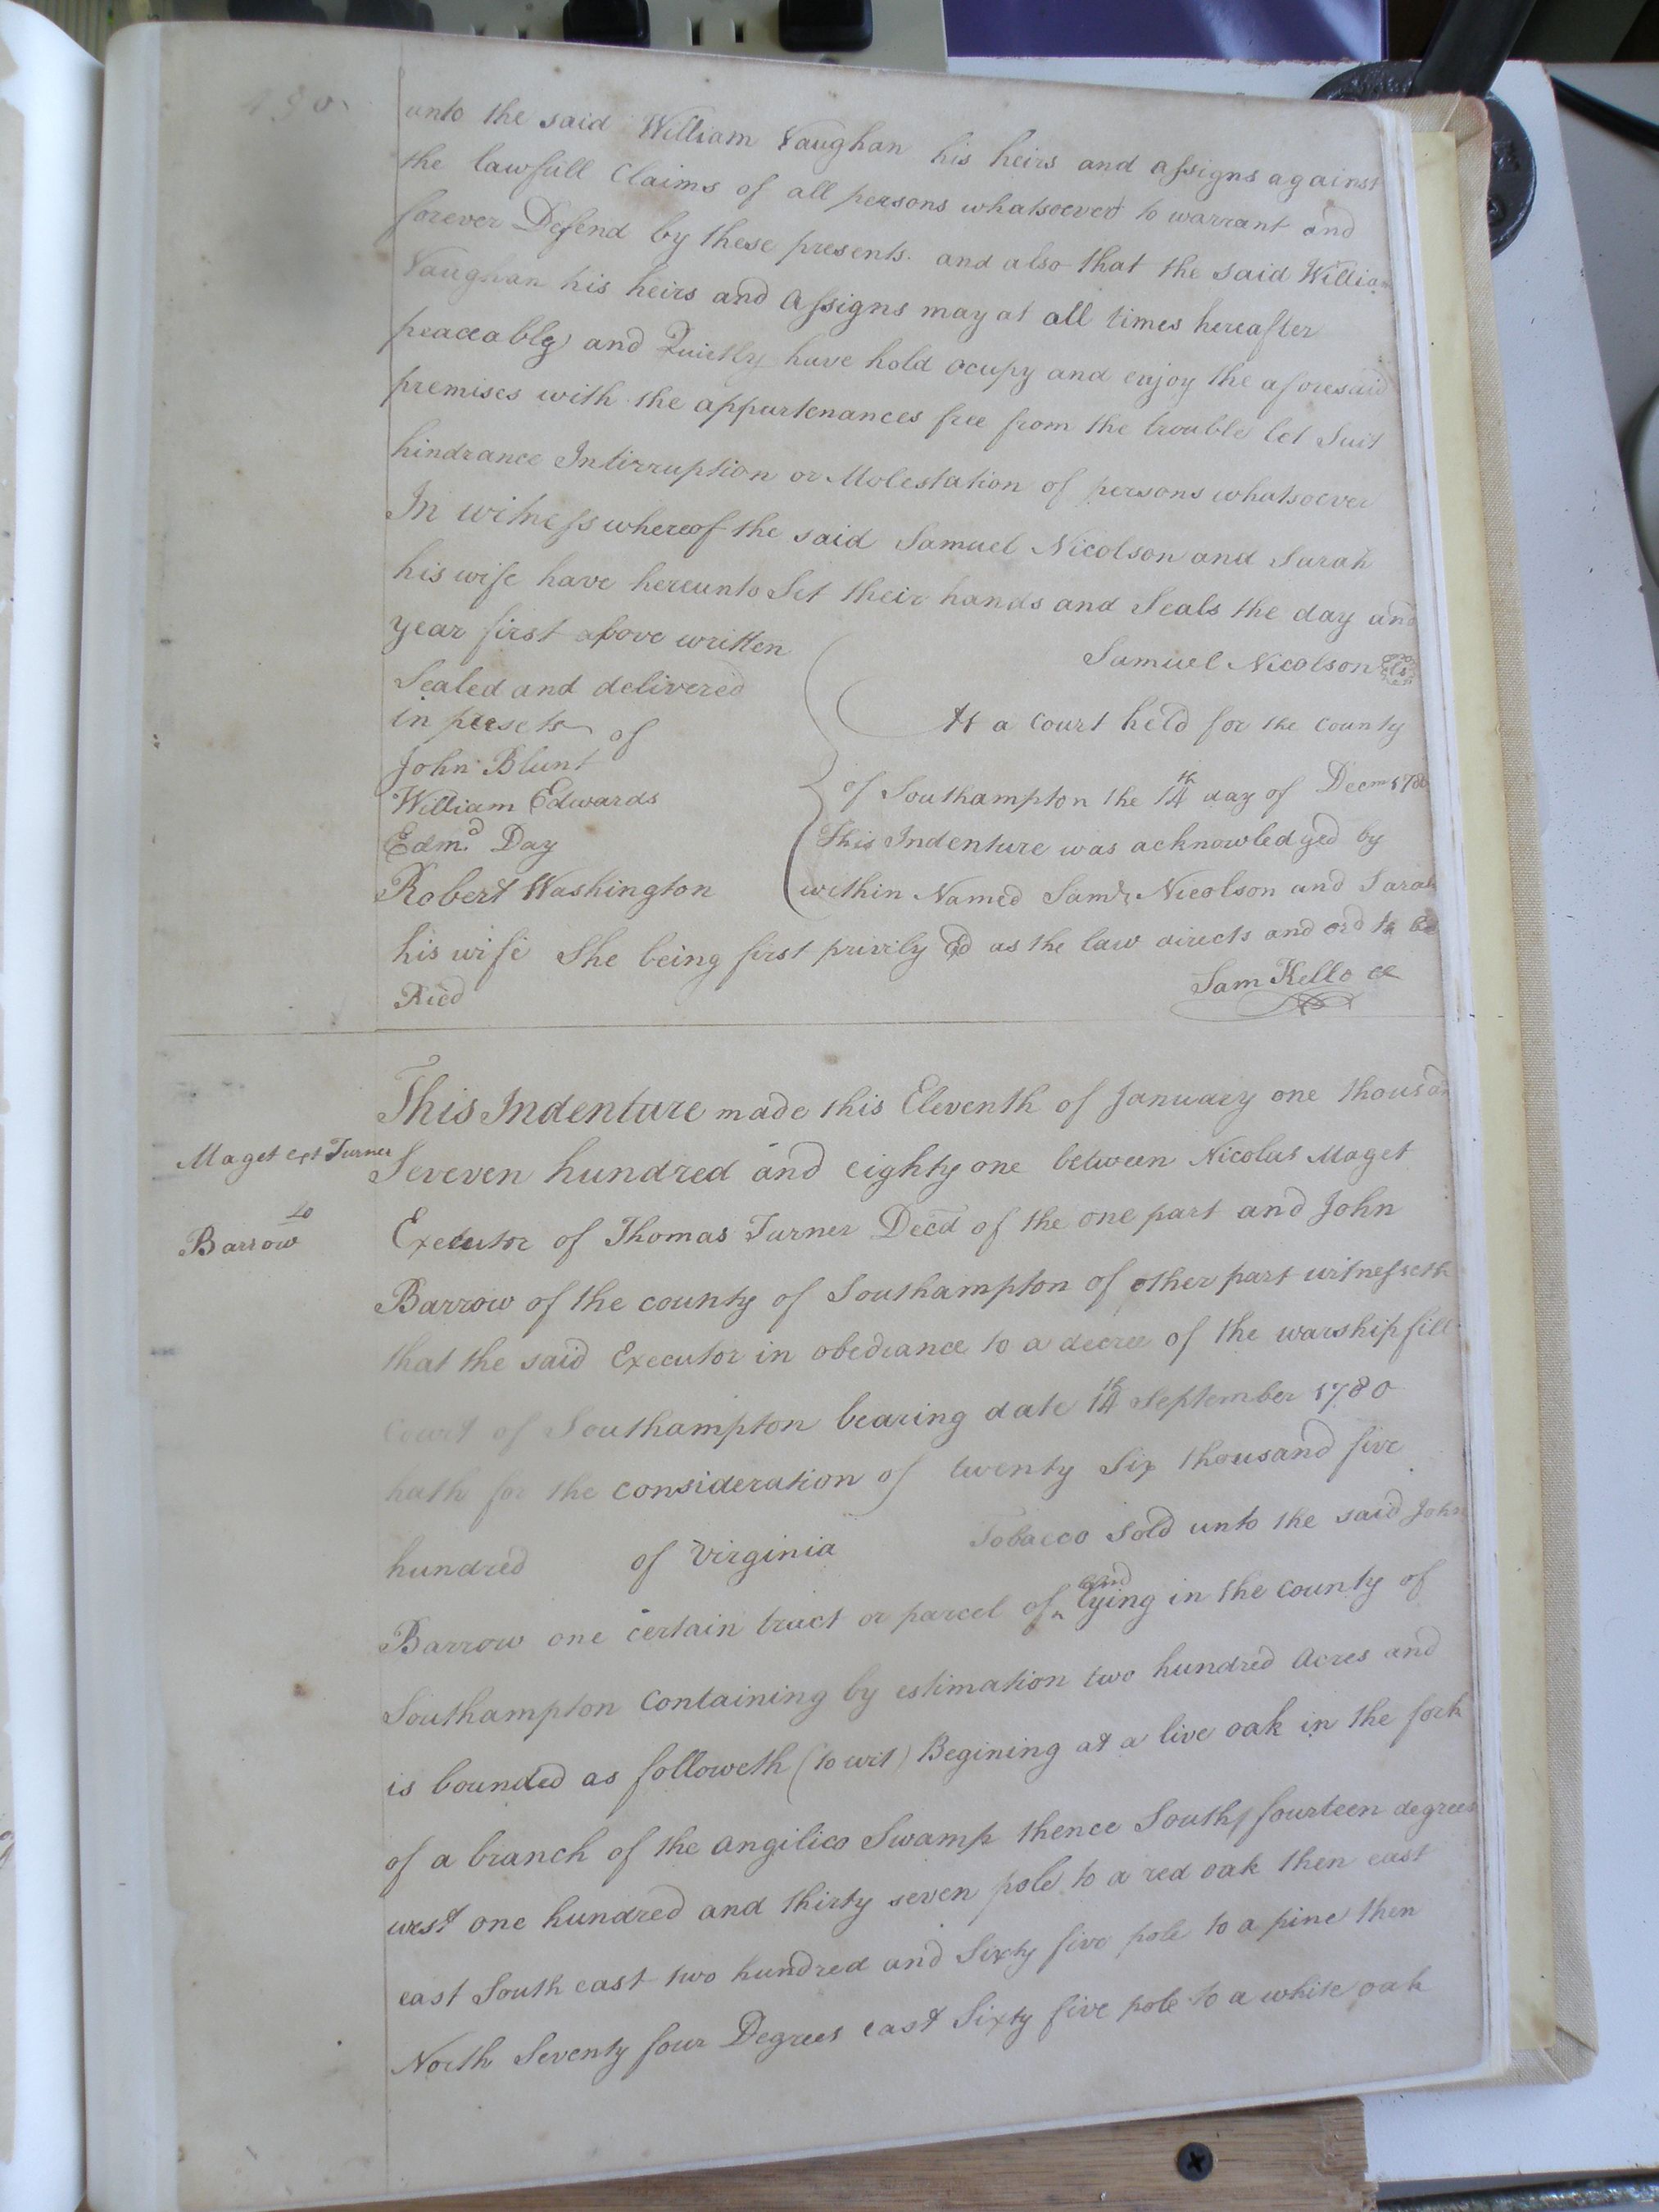 490
unto the said William Vaughan his heirs and assigns against
the lawfull Claims of all persons whatsoever to warrant and
forever Defend by these presents. and also that the said William
Vaughan his heirs and Assigns may at all times hereafter
peaceably and Quietly have hold ocupy and enjoy the aforesaid
premises with the appurtenances free from the trouble let Suit
hindrance Intirruption or Molestation of persons whatsoever
In witness whereof the said Samuel Nicolson and Sarah
his wife have hereunto Set their hands and Seals the day and
year first above written
Samuel Nicolson Ls
Sealed and delivered
in of
John Blunt
William Edwards
Edmd Day
Robert Washington
At a Court held for the County
of Southampton the 14th day of Decm 1780
This Indenture was acknowledged by
within Named Saml Nicolson and Sarah
his wife She being first privily Ed as the law directs and ord to be
Ricd
Sam Kello CC
Maget ext Turner
to
Barrow
This Indenture made this Eleventh of January one thousand
Seveven hundred and eighty one between Nicolas Maget
Executor of Thomas Turner Decd of the one part and John
Barrow of the county of Southampton of other part witnesseth
that the said Executor in obediance to a decree of the warshipfill
Court of Southampton bearing date 14th September 1780
hath for the consideration of twenty Six thousand five
hundred of Virginia Tobacco Sold unto the said John
Barrow one certain tract or parcel of land lying in the County of
Southampton Containing by estimation two hundred Acres and
is bounded as followeth (to wit) Begining at a live oak in the fork
of a branch of the angilico Swamp thence South fourteen degrees
west one hundred and thirty seven pole to a red oak then east
east South east two hundred and Sixty five pole to a pine then
North Seventy four Degrees east Sixty five pole to a white oak